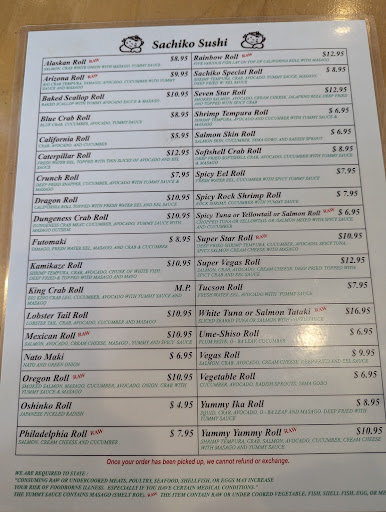 Sachiko Sushi
Alaskan Roll RAW $8.95
SALMON, CRAB WHITE ONION WITH MASAGO, YUMMY SAUCE
Arizona Roll RAW $9.95
BIG CRAB, TEMPURA, TAMAGO, AVOCADO, CUCUMBER WITH YUMMY
SAUCE AND MASAGO
Baked Scallop Roll $10.95
BAKED SCALLOP WITH YUMMY AVOCADO SAUCE & MASAGO
Blue Crab Roll $8.95
BLUE CRAB, CUCUMBER, AVOCADO, YUMMY SAUCE
California Roll $5.95
CRAB, AVOCADO, AND CUCUMBER
Caterpillar Roll $12.95
FRESH WATER EEL, TOPPED WITH THIN SLICES OF AVOCADO AND EEL
SAUCE
Crunch Roll $7.95
DEEP FRIED SNAPPER, CUCUMBER, AVOCADO WITH YUMMY SAUCE &
MASAGO
Dragon Roll $10.95
CALIFORNIA ROLL TOPPED WITH FRESH WATER EEL AND EEL SAUCE
Dungeness Crab Roll $10.95
DUNGENESS CRAB MEAT, CUCUMBER, AVOCADO, YUMMY SAUCE WITH
MASAGO OUTSIDE
Futomaki $ 8.95
TAMAGO, FRESH WATER EEL, MASAGO, AND CRAB & CUCUMBER
Kamikaze Roll $10.95
SHRIMP TEMPURA, CRAB, AVOCADO, CRUNCH, OF WHITE FISH,
DEEP FRIED & TOPPED WITH MASAGO AND MAYO
King Crab Roll M.P.
BIG KING CRAB LEG, CUCUMBER, AVOCADO WITH YUMMY SAUCE AND
MASAGO
Lobster Tail Roll $10.95
LOBSTER TAIL, CRAB, AVOCADO, CUCUMBER AND MASAGO
Mexican Roll RAW $10.95
SALMON, AVOCADO, CREAM CHEESE, MASAGO, YUMMY, AND SPICY SAUCE
Nato Maki $ 6.95
NATO AND GREEN ONION
Oregon Roll $10.95
SMOKED SALMON, MASAGO, CUCUMBER, AVOCADO, ONION, CRAB WITH
YUMMY SAUCE & MASAGO
Oshinko Roll $ 4.95
JAPANESE PICKLED RADISH
Philadelphia Roll RAW $ 7.95
SALMON, CREAM CHEESE AND CUCUMBER
Rainbow Roll RAW $12.95
FIVE VARIOUS FISH LAY ON TOP OF CALIFORNIA ROLL WITH MASAGO
Sachiko Special Roll $ 8.95
SHRIMP TEMPURA, CRAB, AVOCADO, YUMMY SAUCE, MASAGO
Seven Star Roll $12.95
SMOKED SALMON, AVOCADO, CREAM CHEESE, JALAPENO ROLL DEEP FRIED
AND TOPPED WITH SPICY CRAB
Shrimp Tempura Roll $ 6.95
SHRIMP TEMPURA, AVOCADO AND CUCUMBER WITH YUMMY SAUCE &
MASAGO
Salmon Skin Roll $ 6.95
SALMON SKIN, CUCUMBER, YAMA GOBO, AND RADISH SPROUT
Softshell Crab Roll $ 8.95
DEEP FRIED SOFTSHELL CRAB, AVOCADO, CUCUMBER WITH YUMMY SAUCE &
MASAGO
Spicy Eel Roll $7.95
FRESH WATER EEL, CUCUMBER WITH SPICY SAUCE
Spicy Rock Shrimp Roll $ 7.95
ROCK SHRIMP, CUCUMBER WITH YUMMY SAUCE
Spicy Tuna or Yellowtail or Salmon Roll RAW $ 6.95
CHOPPED TUNA OR YELLOWTAIL OR SALMON MIXED WITH SPICY SAUCE
AND CUCUMBER
Super Star Roll RAW $10.95
DEEP FRIED SHRIMP TEMPURA, CUCUMBER, AVOCADO, SPICY TUNA,
SPICY SALMON CREAM CHEESE WITH MASAGO
Super Vegas Roll $12.95
SALMON, CRAB, AVOCADO, CREAM CHEESE DEEP FRIED, TOPPED WITH
SPICY CRAB AND EEL SAUCE
Tucson Roll $7.95
FRESH WATER EEL, AVOCADO WITH YUMMY SAUCE
White Tuna or Salmon Tataki RAW $16.95
Ume-Shiso Roll $ 6.95
PLUM PASTE, O-BA LEAF, CUCUMBER
Vegas Roll $ 9.95
SALMON, CRAB, AVOCADO, CREAM CHEESE, DEEP FRIED AND EEL SAUCE
Vegetable Roll $ 6.95
CUCUMBER, AVOCADO, RADISH SPROUTS, YAMA GOBO
Yummy Ika Roll $ 8.95
SQUID, CRAB, AVOCADO, O-BA LEAF AND MASAGO, DEEP-FRIED WITH
YUMMY SAUCE
Yummy Yummy Roll RAW $10.95
SHRIMP TEMPURA, CRAB, SALMON, AVOCADO, CUCUMBER, CREAM CHEESE
WITH MASAGO & YUMMY SAUCE
Once your order has been picked up, we cannot refund or exchange.
WE ARE REQUIRED TO STATE :
"CONSUMING RAW OR UNDERCOOKED MEATS, POULTRY, SEAFOOD, SHELLFISH, OR EGGS MAY INCREASE
YOUR RISK OF FOODBORNE ILLNESS, ESPECIALLY IF YOU HAVE CERTAIN MEDICAL CONDITIONS."
THE YUMMY SAUCE CONTAINS MASAGO (SMELT ROE), RAW THE ITEM CONTAIN RAW OR UNDER COOKED VEGETABLE, FISH, SHELL FISH, EGG, OR ME